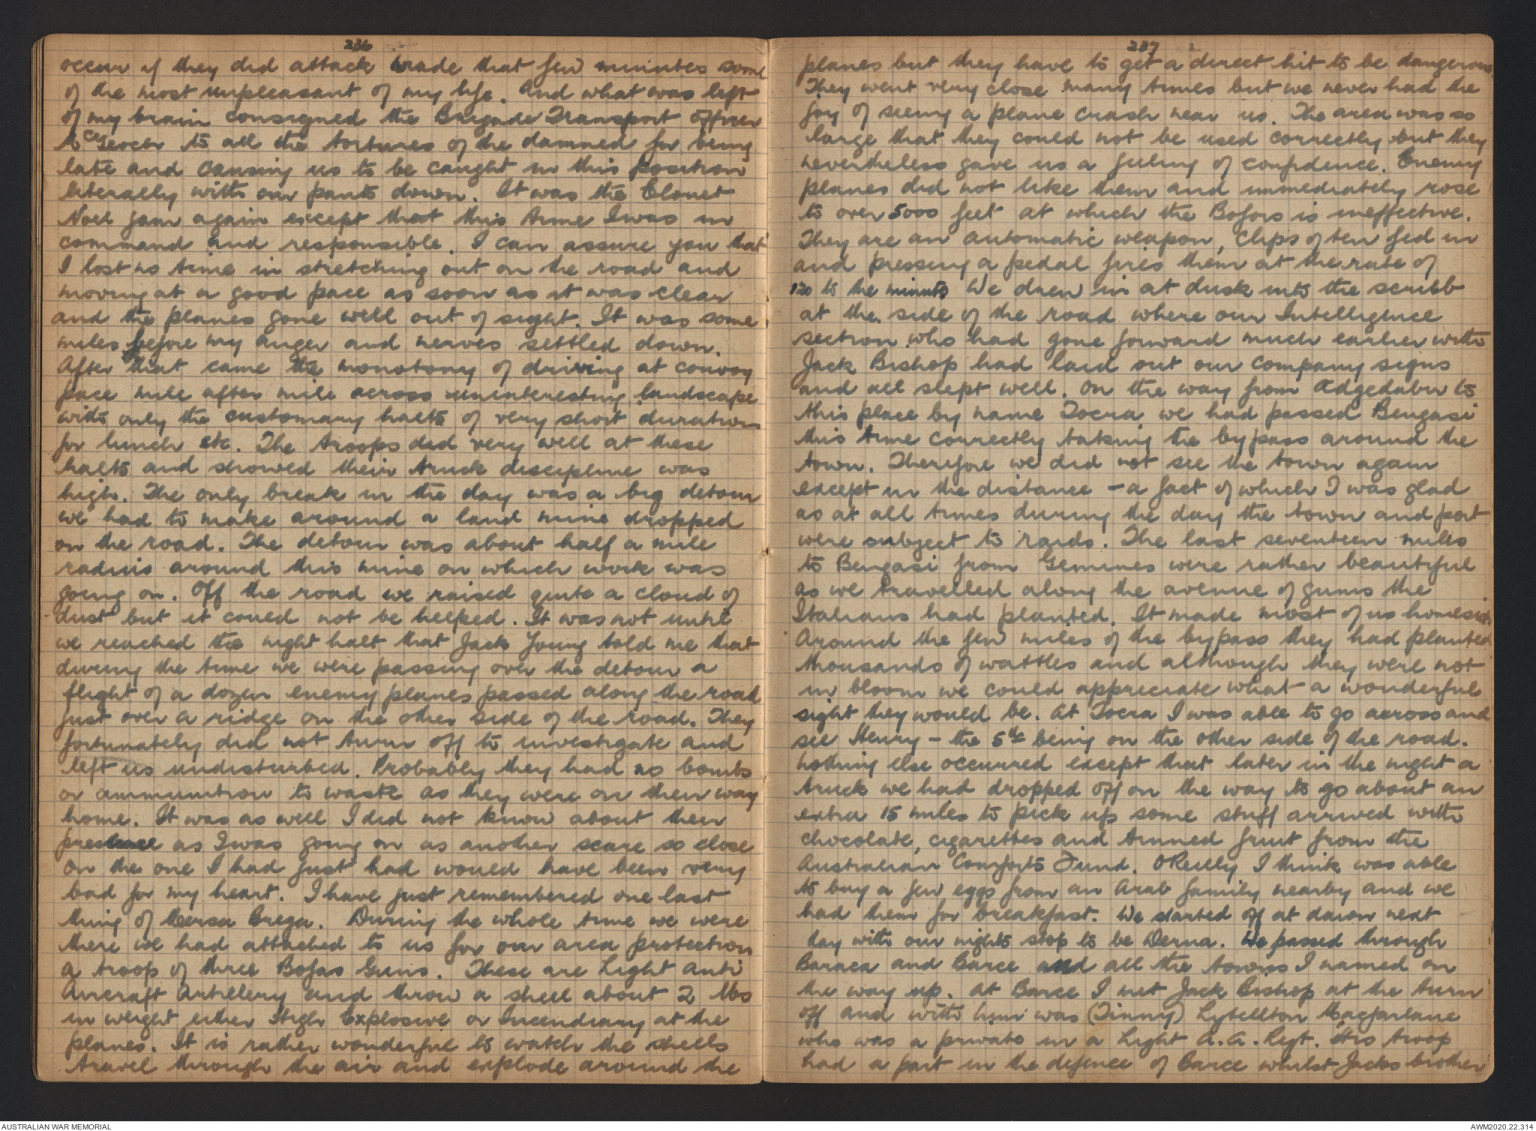 236
occur if they did attack made that few minutes some
of the most unpleasant of my life. And what was left
of my brain consigned the Brigade Transport officer
to all the tortures of the damned for being
late and causing us to be caught in this position
literally with our pants down. It was the
jam again except that this time I was in
command and responsible. I can assure you that
I lost no time in stretching out on the road and
moving at a good pace as soon as it was clear
and the planes gone well out of sight. It was some
miles before my anger and nerves settled down.
After that came the monotony of driving at convoy
pace mile after mile across uninteresting landscape
with only the customary halts of very short durations
for lunch etc. The troops did very well at these
halts and showed their truck discipline was
high. The only break in the day was a big detour
we had to make around a land mine dropped
on the road. The detour was about half a mile
radius around this mine on which work was
going on. Off the road we raised quite a cloud of
dust but it could not be helped. It was not until
we reached the night halt that Jack Young told me that
during the time we were passing over the detour a
flight of a dozen enemy planes passed along the road
just over a ridge on the other side of the road. They
fortunately did not turn off to investigate and
left us undisturbed. Probably they had no bombs
or ammunition to waste as they were on their way
home. It was as well I did not know about their
presence as I was going on as another scare so close
on the one I had just had would have been very
bad for my heart. I have just remembered one last
thing of Mersa Brega. During the whole time we were
there we had attached to us for our area protection
a troop of three Bofas Guns. These are Light Anti
Aircraft Artillery and throw a shell about 2 lbs
in weight either High Explosive or Incendiary at the
planes. It is rather wonderful to watch the shells
travel through the air and explode around the
237
planes but they have to get a direct hit to be dangerous
They went very close many times but we never had the
joy of seeing a plane crash near us. The area was so
large that they could not be used correctly but they
nevertheless gave us a feeling of confidence. Enemy
planes did not like them and immediately rose
to over 5000 feet at which the Bofors is ineffective.
They are an automatic weapon, clips of ten fed in
and pressing a pedal fires them at the rate of
120 to the minute We drew in at dusk into the scrub
at the side of the road where our Intelligence
section who had gone forward much earlier with
Jack Bishop had laid out our company signs
and all slept well. On the way from Adgedabir to
this place by name Tocra we had passed Bengasi
this time correctly taking the bypass around the
town. Therefore we did not see the town again
except in the distance - a fact of which I was glad
as at all times during the day the town and port
were subject to raids. The last seventeen miles
to Bengasi from Gemines were rather beautiful
as we travelled along the avenue of gums the
Italians had planted. It made most of us homesick.
Around the few miles of the bypass they had planted
thousands of wattles and although they were not
in bloom we could appreciate what a wonderful
sight they would be. At Tocra I was able to go across and
see Henry - the 5th being on the other side of the road.
Nothing else occurred except that later in the night a
truck we had dropped off on the way to go about an
extra 15 miles to pick up some stuff arrived with
chocolate, cigarettes and tinned fruit from the
Australian Comforts Fund. OReilly I think was able
to buy a few eggs from an Arab family nearby and we
had them for breakfast. We started off at dawn next
day with our nights stop to be Derna. We passed through
Baraca and Barce and all the towns I named on
the way up. At Barce I met Jack Bishop at the turn
off and with him was (Tinny) Lyttellton Macfarlane
who was a private in a Light A.A. Regt. His troop
had a part in the defence of Barce whilst Jacks brother
AUSTRALIAN WAR MEMORIAL
AWM2020.22.314